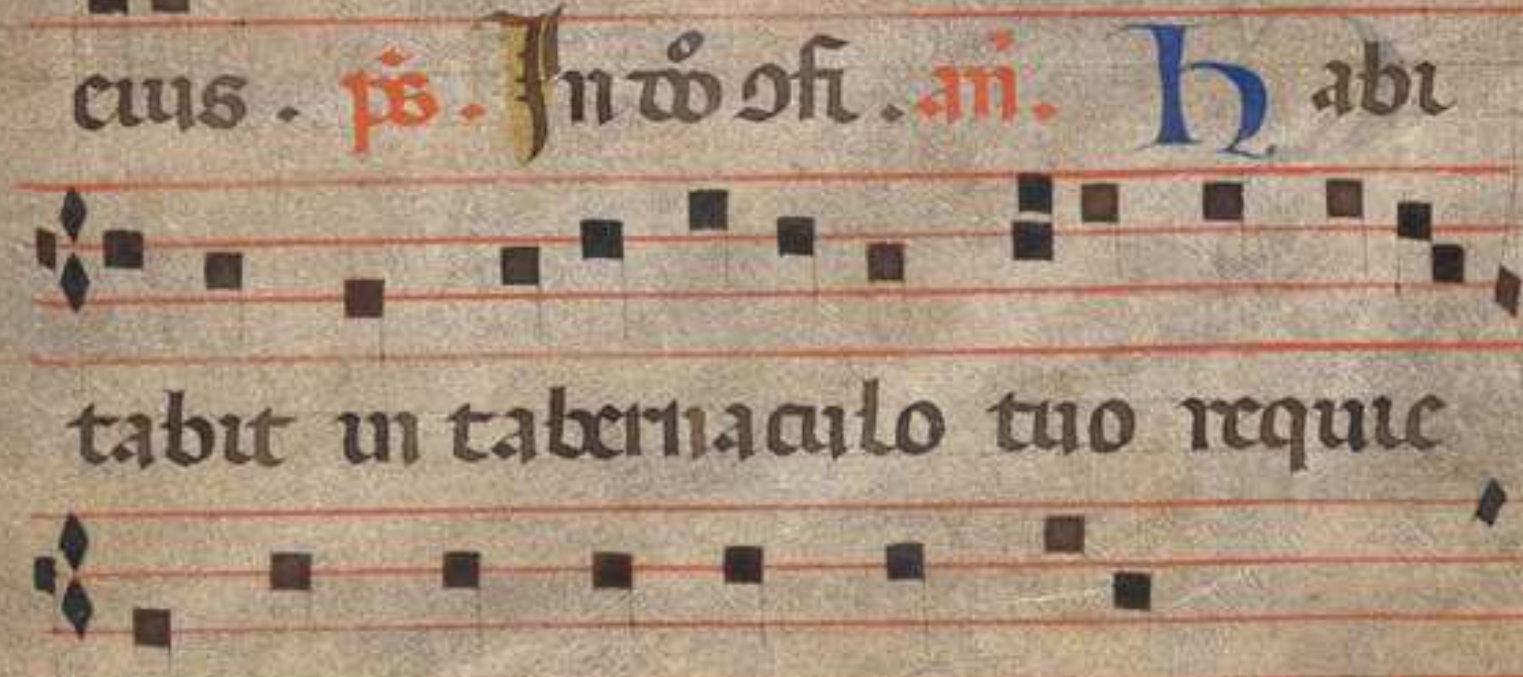 eius. ps. In dno ɔfi. an. Habi
tabit in tabernaculo tuo requie